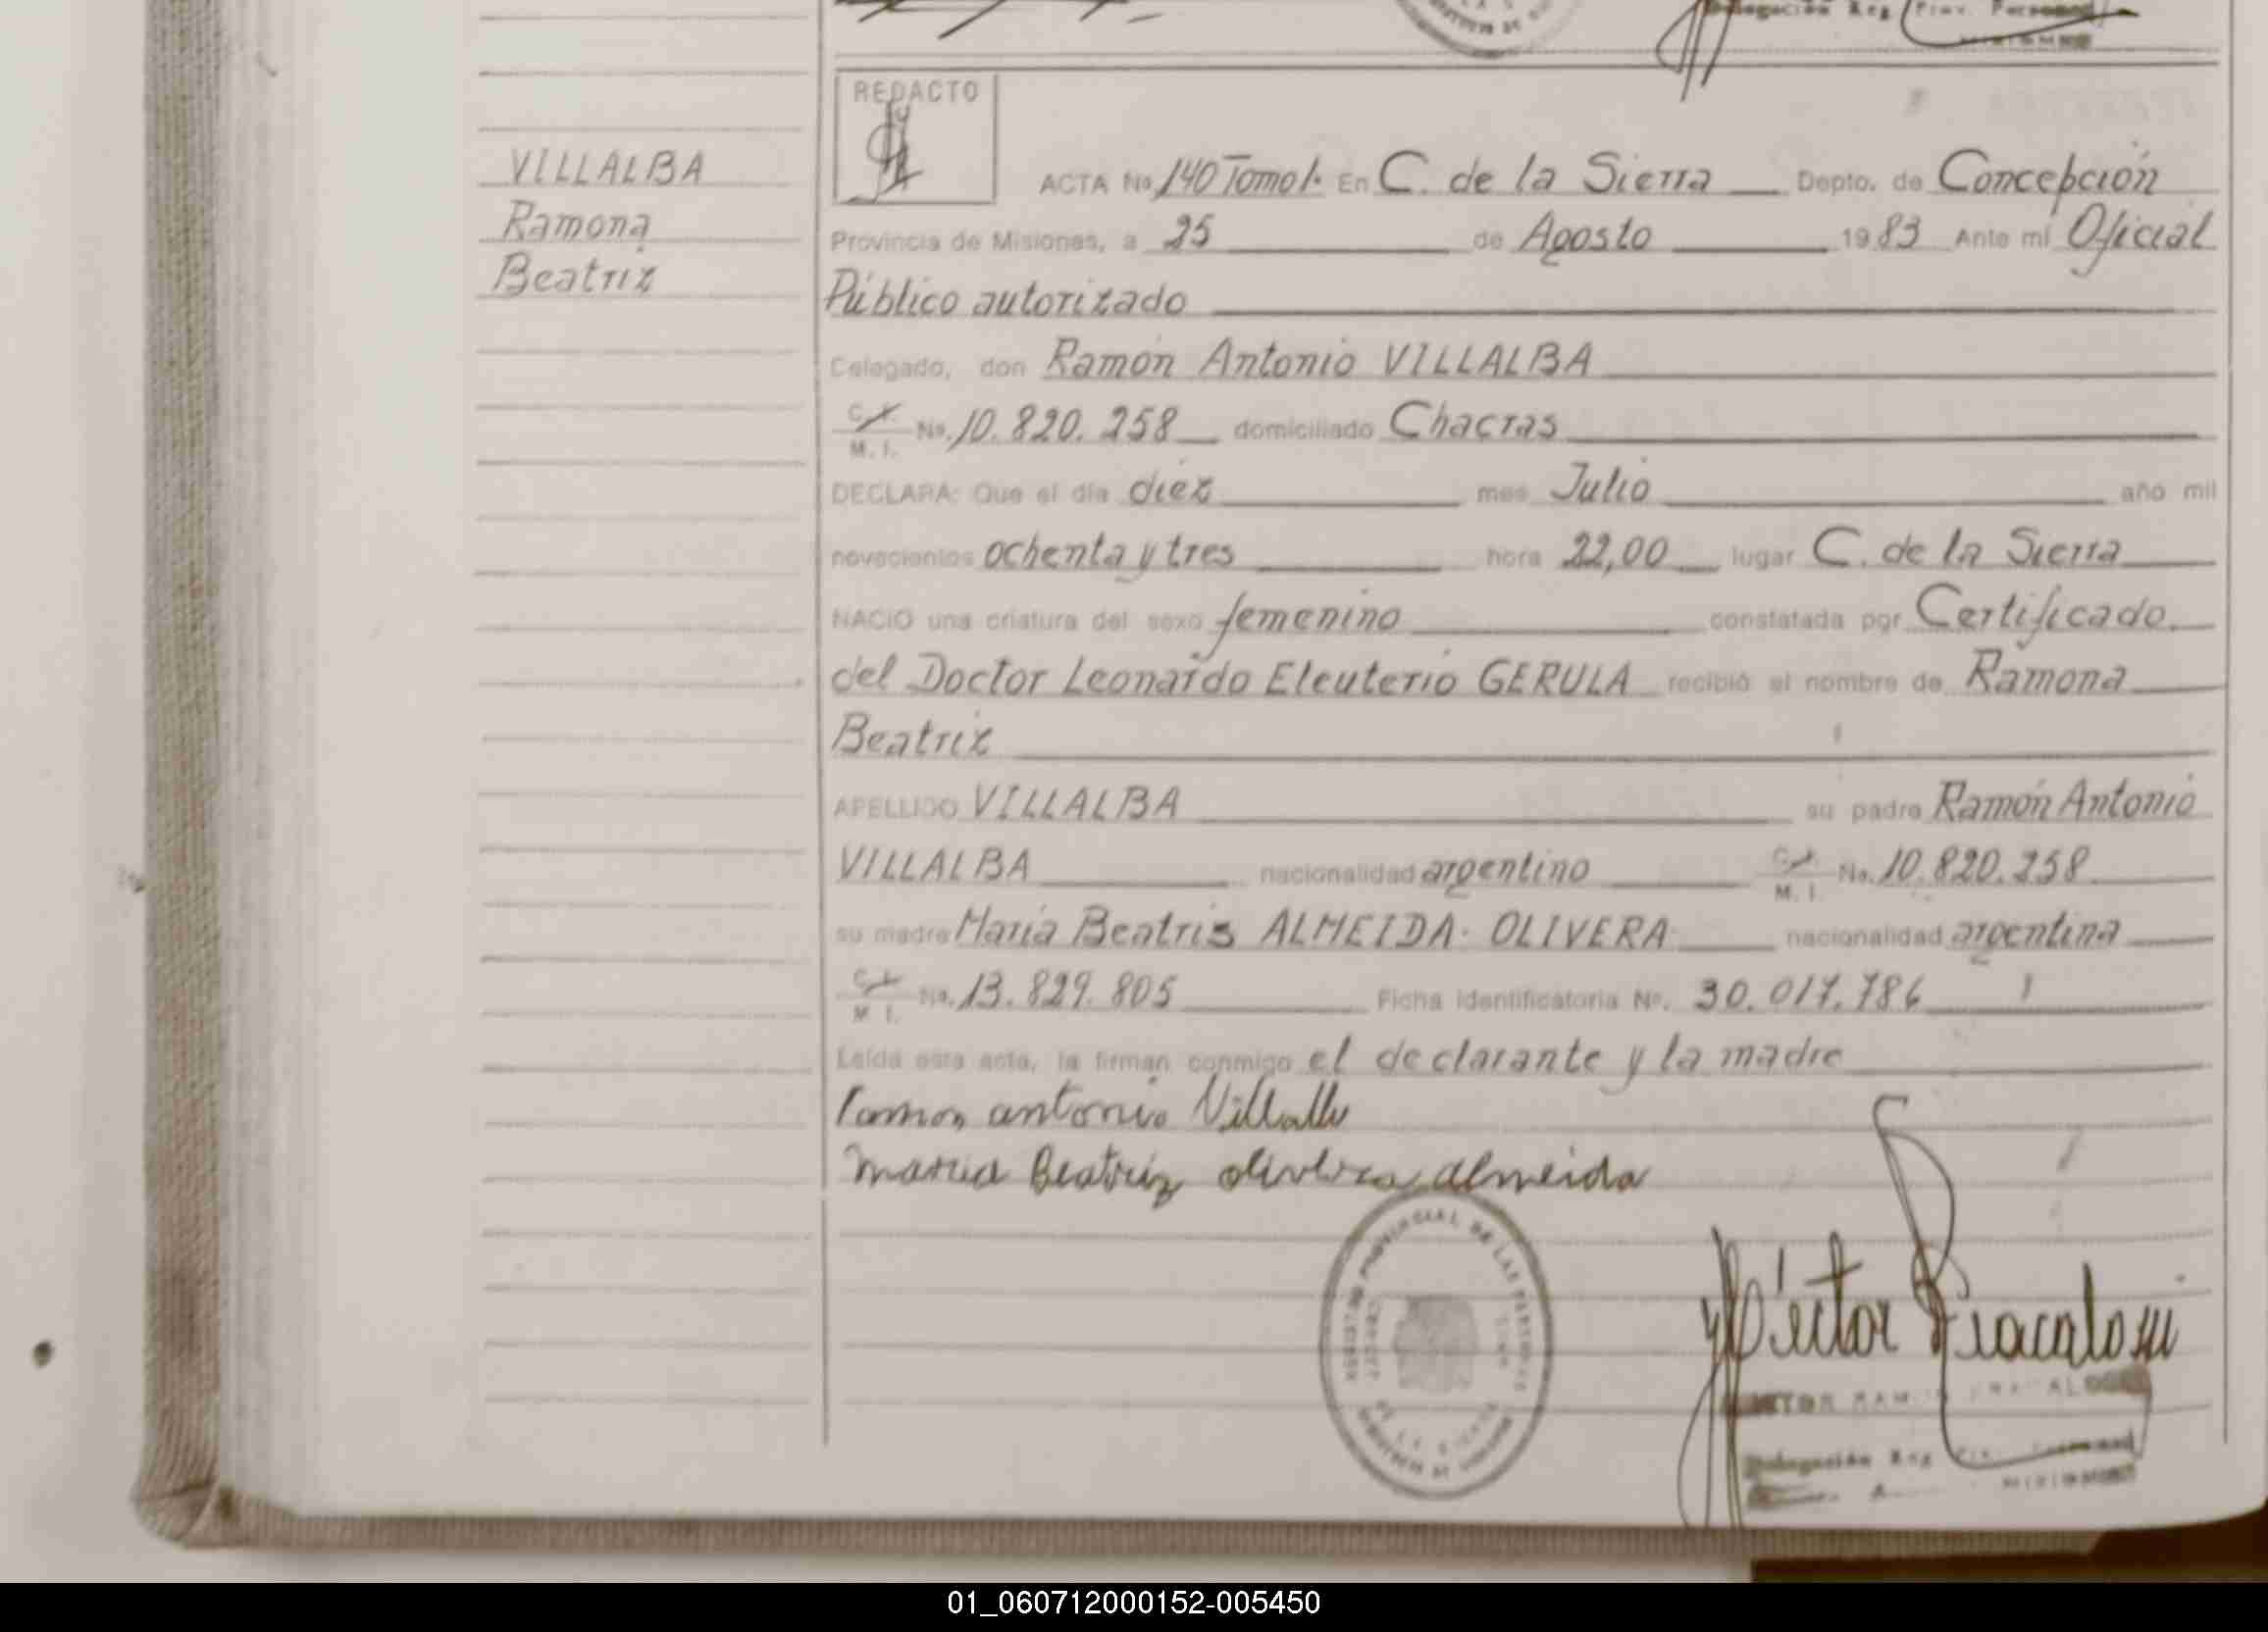 Delegación Reg. Prov. Personas
MISIONES
REDACTO
VILLALBA
Ramona
Beatriz
ACTA No 140 Tomo I. En C. de la Sierra Depto. de Concepción
Provincia de Misiones, a 25 de Agosto 1983 Ante mi Oficial
Público autorizado
Delegado, don Ramón Antonio VILLALBA
C. I. / M. I. No. 10.820.258 domiciliado Chacras
DECLARA: Que el día diez mes Julio año mil
novecientos ochenta y tres hora 22,00 lugar C. de la Sierra
NACIO una criatura del sexo femenino constatada por Certificado
del Doctor Leonardo Eleuterio GERULA recibió el nombre de Ramona
Beatriz
APELLIDO VILLALBA su padre Ramón Antonio
VILLALBA nacionalidad argentino C. I. / M. I. No. 10.820.258
su madre María Beatris ALMEIDA - OLIVERA nacionalidad argentina
C. I. / M. I. No. 13.829.805 Ficha identificatoria Nº. 30.017.786
Leída esta acta, la firman conmigo el declarante y la madre
Ramon antonio Villalba
maria Beatriz olivera almeida
REGISTRO PROVINCIAL DE LAS PERSONAS
Héctor
Delegación Reg.
MISIONES
01_060712000152-005450